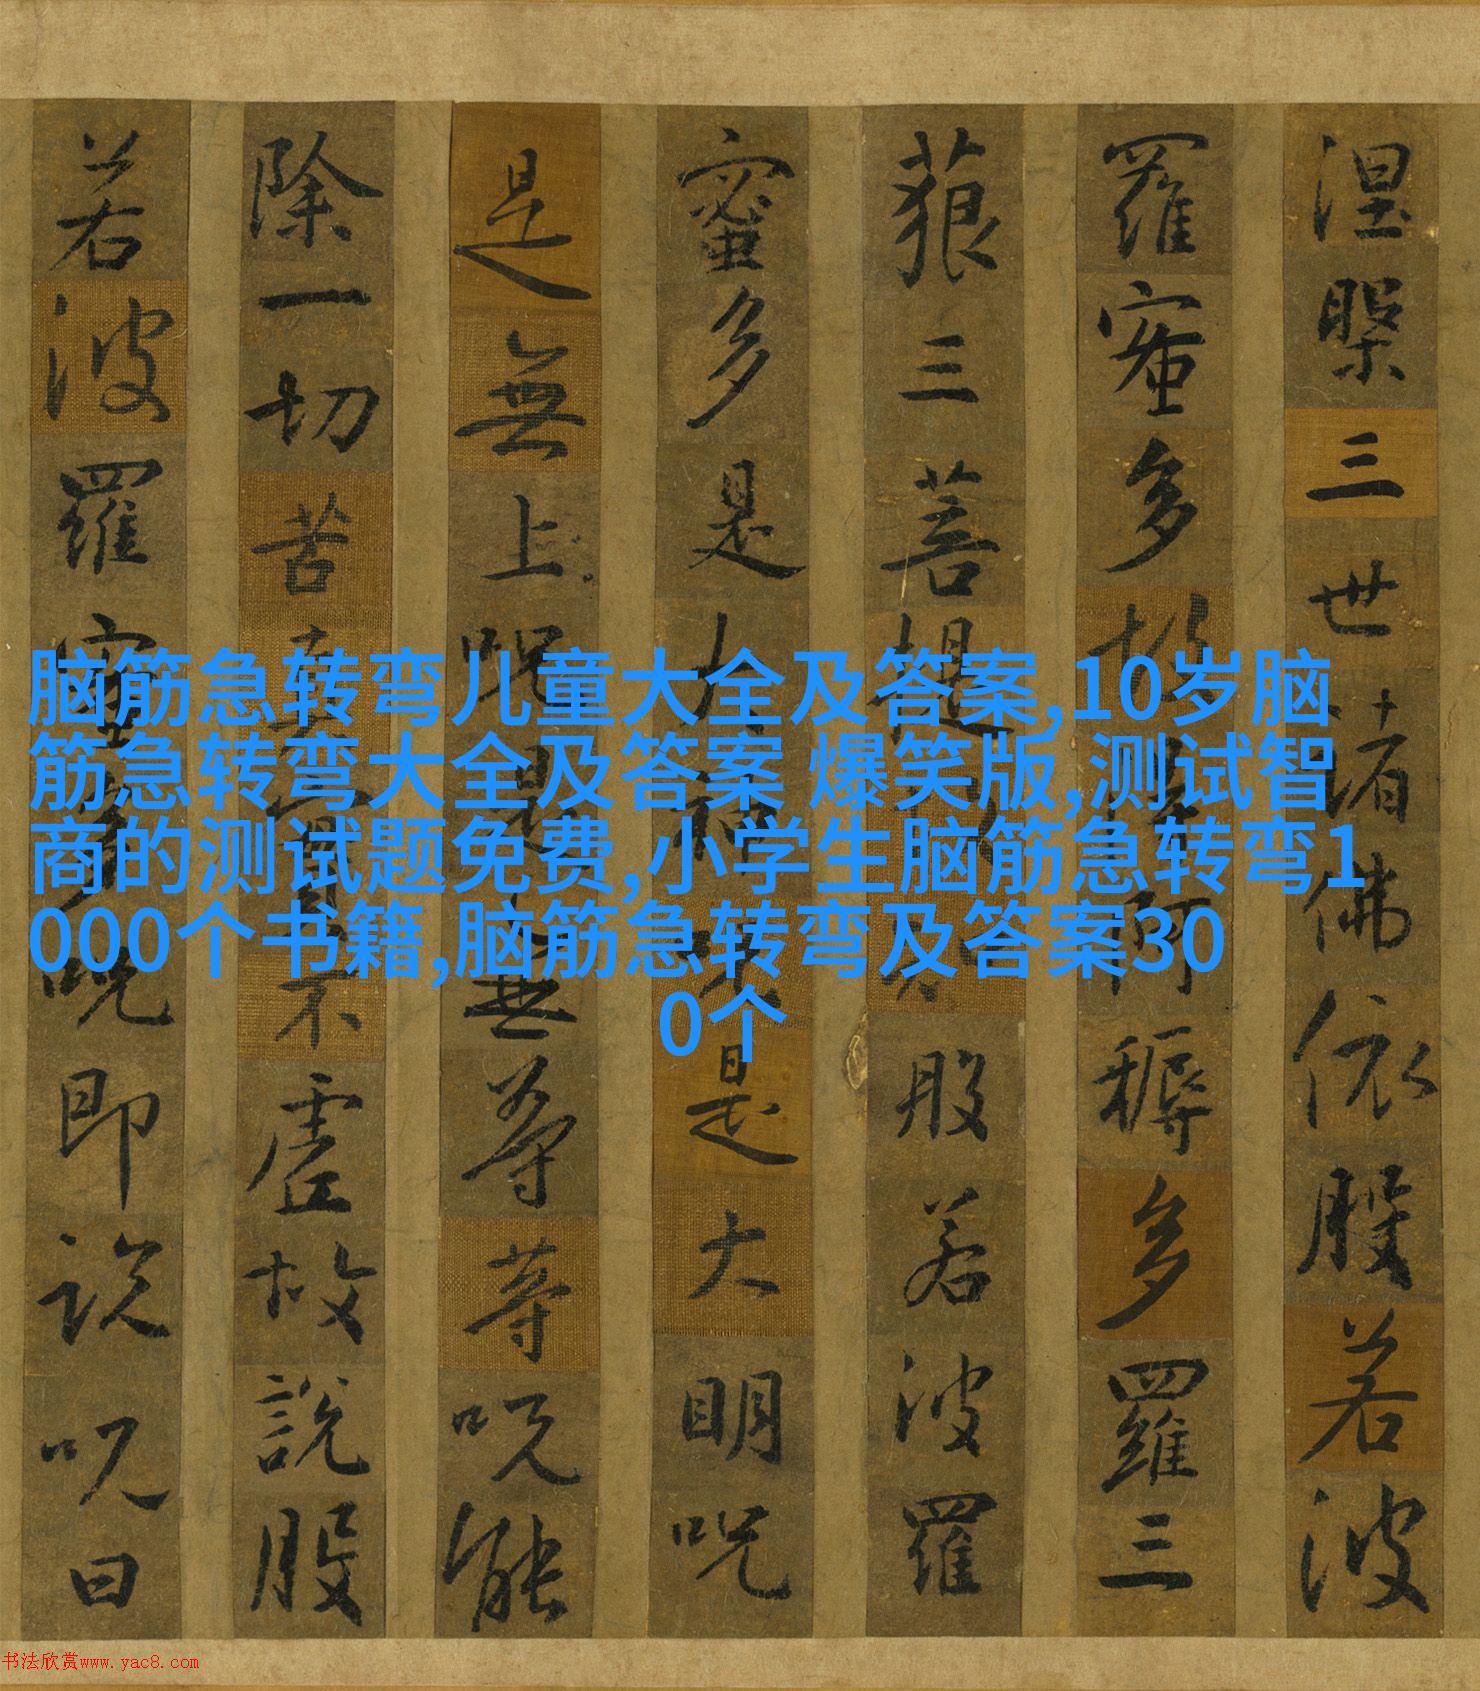 涅槃三世諸佛依般若波
羅蜜多故得阿耨多羅三
藐三菩提故知般若波羅
蜜多是大神咒是大明咒
是無上咒是無等等咒能
除一切苦真實不虛故說般
若波羅蜜多咒即說咒曰
脑筋急转弯儿童大全及答案,10岁脑
筋急转弯大全及答案 爆笑版,测试智
商的测试题免费,小学生脑筋急转弯1
000个书籍,脑筋急转弯及答案30
0个
书法欣赏www.yac8.com